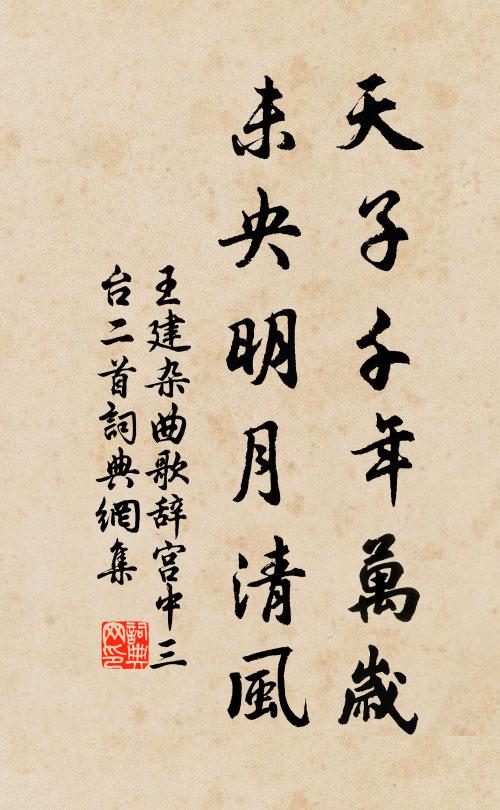 天子千年萬歲
未央明月清風
王建杂曲歌辞宫中三
台二首詞典網集
詞典
网印